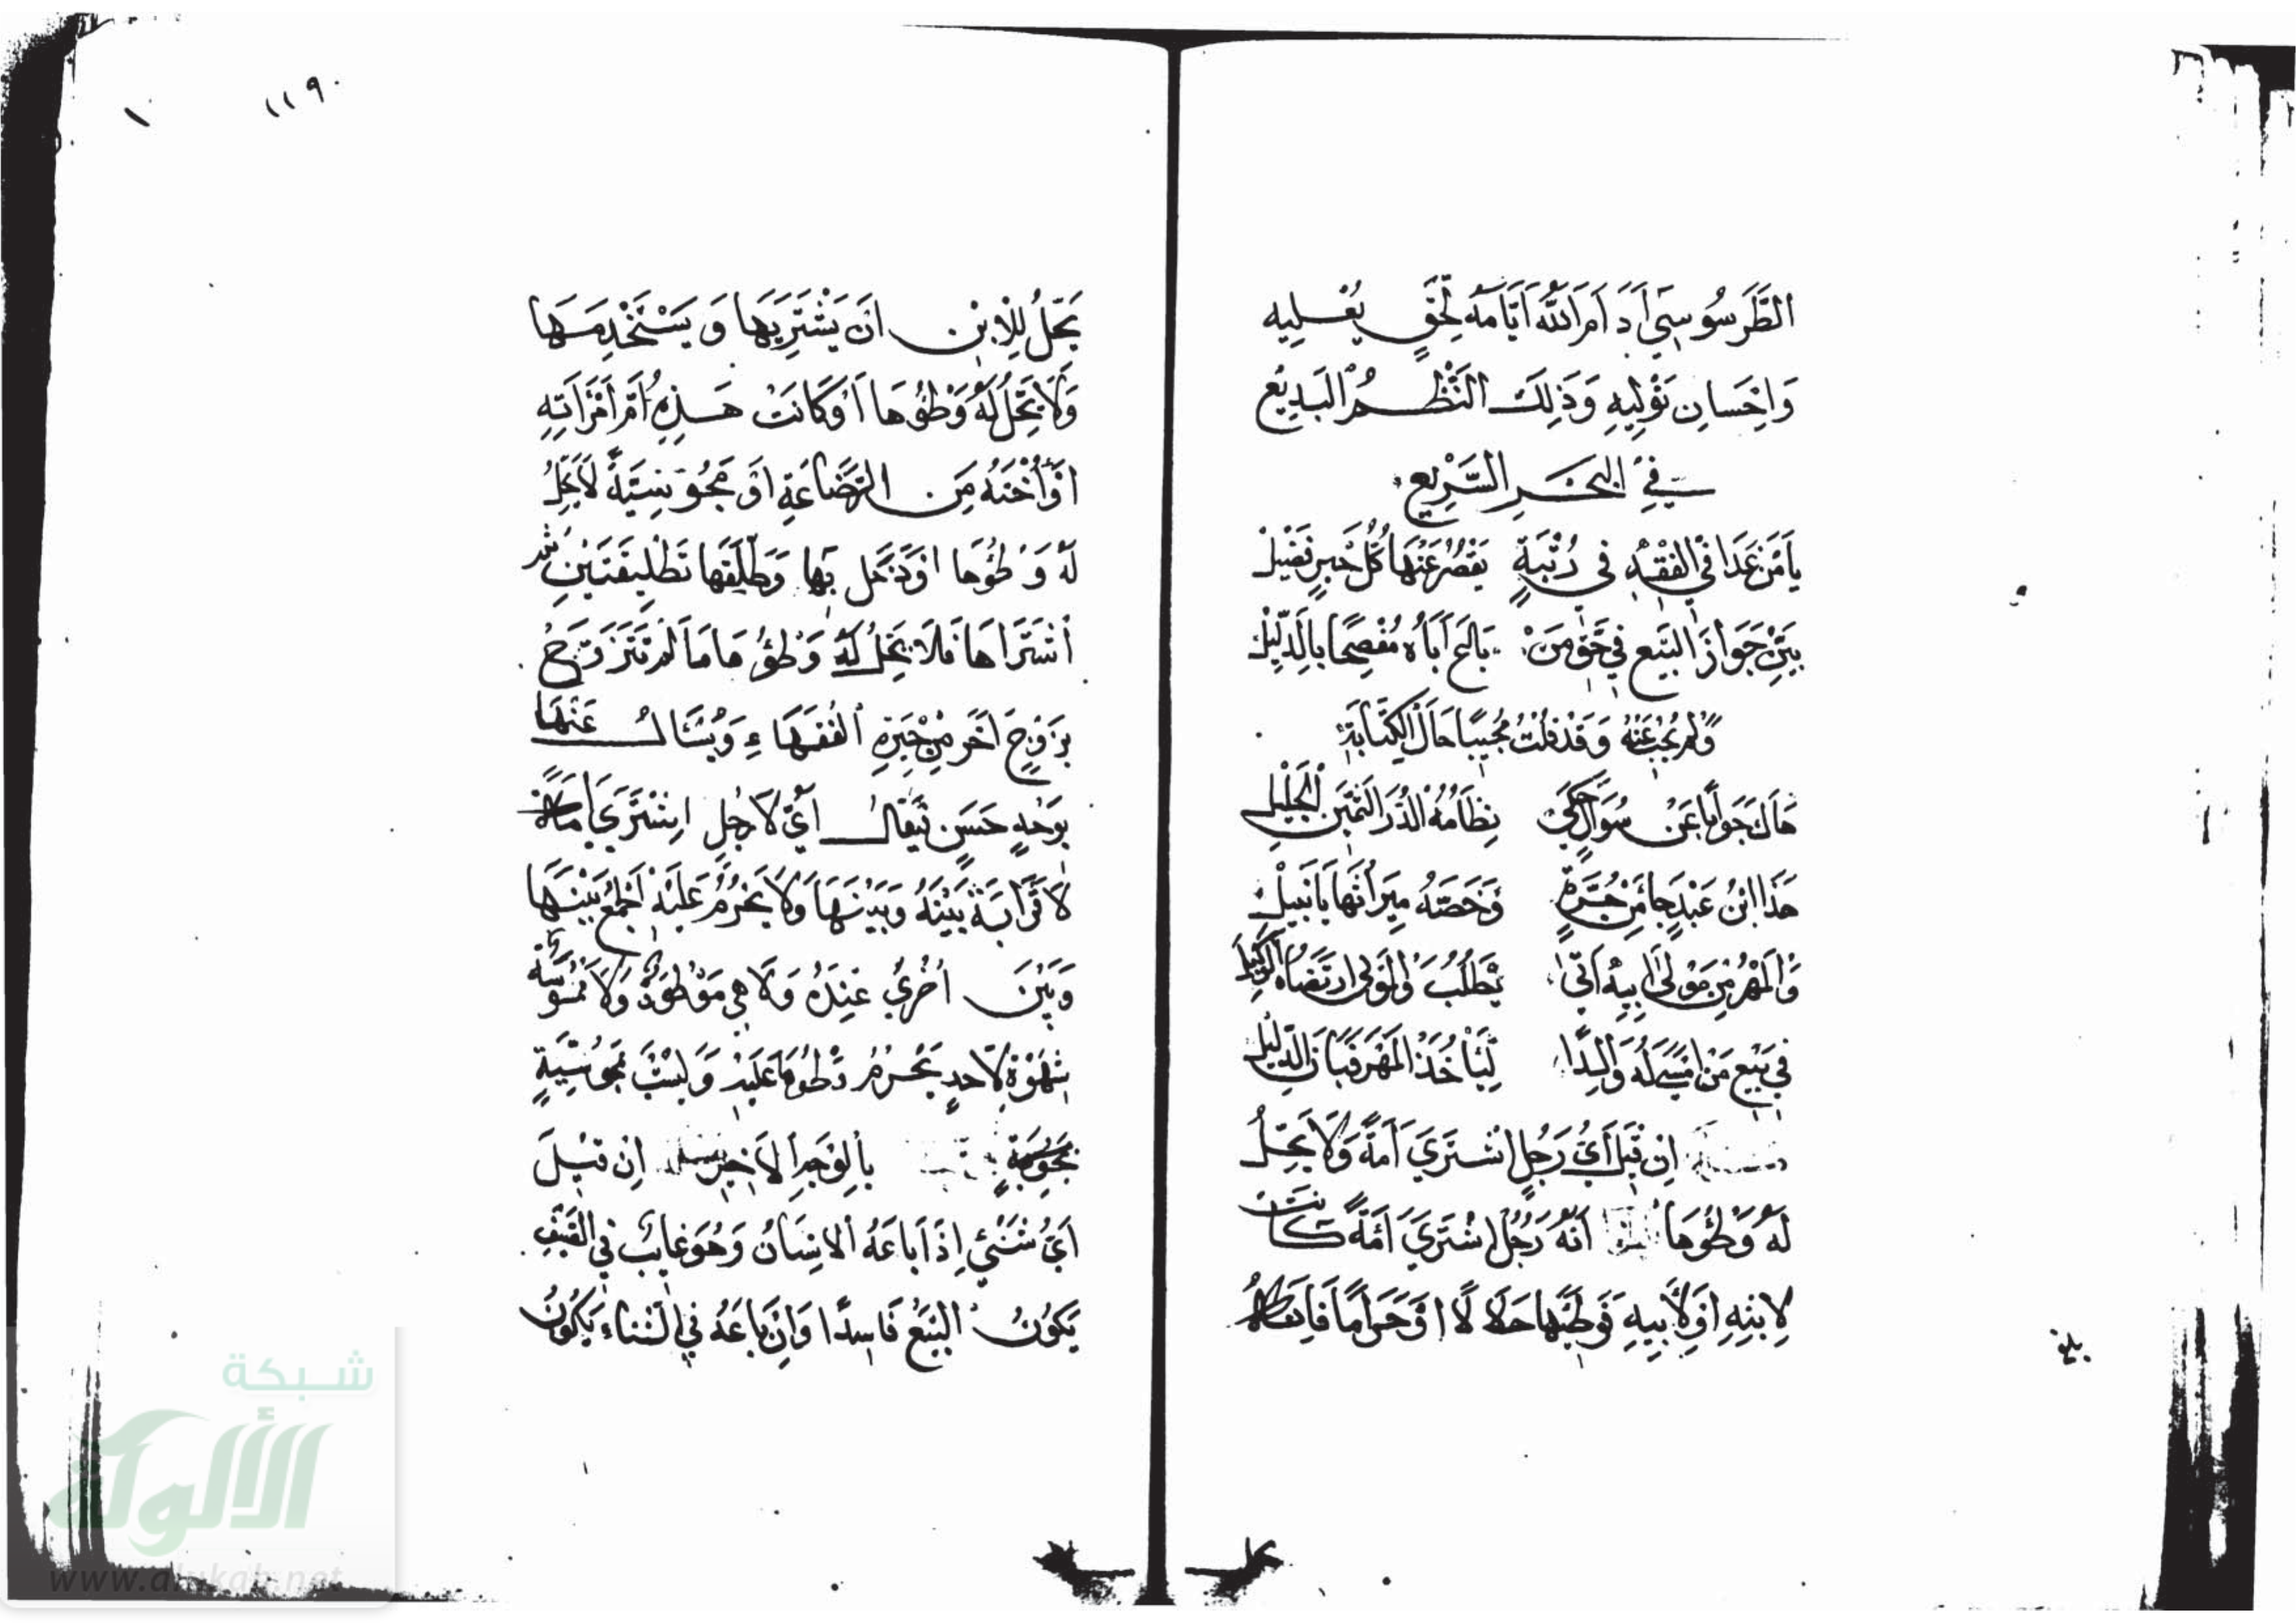 الطَّرَسُوسِيّ أَدَامَ اللَّهُ أَيَّامَهُ لِحَقٍّ يُعْلِيهِ
وَإِحْسَانٍ يُوْلِيهِ وَذَلِكَ النَّظْمُ البَدِيْعُ
فِي البَحْرِ السَّرِيعِ
يَا مَنْ غَدَا فِي الفِقْهِ فِي رُتْبَةٍ يَقْصُرُ عَنْهَا كُلُّ حَبْرٍ نَبِيْل
بَيِّنْ جَوَازَ البَيْعِ فِي حَقِّ مَنْ بَاعَ أَبَاهُ مُفْصِحًا بِالدَّلِيْل
وَلَمْ يُجِبْ عَنْهُ وَقَدْ قُلْتُ مُجِيْبًا حَالَ الكِتَابَةِ
هَاكَ جَوَابًا عَنْ سُؤَالٍ حَكَى نِظَامُهُ الدُّرَّ الثَّمِينَ الجَلِيْل
هَذَا ابْنُ عَبْدٍ جَا مِنْ حُرَّةٍ وَخَصَّهُ مِيْرَاثُهَا يَا نَبِيْل
وَالمَهْرُ مِنْ مَوْلَى أَبِيْهِ أَتَى يَطْلُبُ وَالمَوْلَى ارْتَضَاهُ الوَكِيْل
فِي بَيْعِ مَنْ أَمْسَى لَهُ وَالِدًا لِيَأْخُذَ المَهْرَ فَبَانَ الدَّلِيْل
إِنْ قِيلَ أَيُّ رَجُلٍ اشْتَرَى أَمَةً وَلَا يَحِلُّ
لَهُ وَطْؤُهَا أَنَّهُ رَجُلٌ اشْتَرَى أَمَةً كَانَتْ
لِابْنِهِ أَوْ لِأَبِيهِ فَوَطِئَهَا حَلَالًا أَوْ حَرَامًا فَإِنَّهُ
١١٩
١
يَحِلُّ لِلْابْنِ أَنْ يَشْتَرِيَهَا وَيَسْتَخْدِمَهَا
وَلَا يَحِلُّ لَهُ وَطْؤُهَا أَوْ كَانَتْ هَذِهِ أُمَّ امْرَأَتِهِ
أَوْ أُخْتَهُ مِنَ الرَّضَاعَةِ أَوْ مَجُوسِيَّةً لَا يَحِلُّ
لَهُ وَطْؤُهَا أَوْ دَخَلَ بِهَا وَطَلَّقَهَا تَطْلِيقَتَيْنِ ثُمَّ
اشْتَرَاهَا فَلَا يَحِلُّ لَهُ وَطْؤُهَا مَا لَمْ تَتَزَوَّجْ
بِزَوْجٍ آخَرَ مِنْ حَيْرَةِ الفُقَهَاءِ وَيُسْأَلُ عَنْهَا
بِوَجْهٍ حَسَنٍ فَيُقَالُ أَيُّ رَجُلٍ اشْتَرَى أَمَةً
لَا قَرَابَةَ بَيْنَهُ وَبَيْنَهَا وَلَا يَحْرُمُ عَلَيْهِ الجَمْعُ بَيْنَهَا
وَبَيْنَ أُخْرَى عِنْدَهُ وَلَا هِيَ مَوْطُوءَةٌ وَلَا مَمْسُوسَةٌ
بِشَهْوَةٍ لِأَحَدٍ يَحْرُمُ وَطْؤُهَا عَلَيْهِ وَلَيْسَتْ بِمَجُوسِيَّةٍ
بِالوَجْهِ الأَخِيرِ إِنْ قِيلَ
أَيُّ شَيْءٍ إِذَا بَاعَهُ الإِنْسَانُ وَهُوَ غَائِبٌ فِي الصَّيْفِ
يَكُونُ البَيْعُ فَاسِدًا وَإِنْ بَاعَهُ فِي الشِّتَاءِ يَكُونُ
شبكة
الألوكة
www.alukah.net